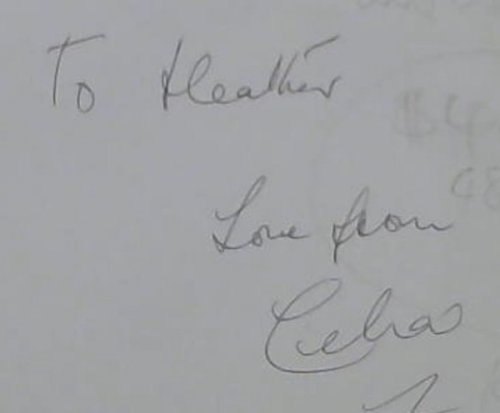 To Heather
Love from
Celia